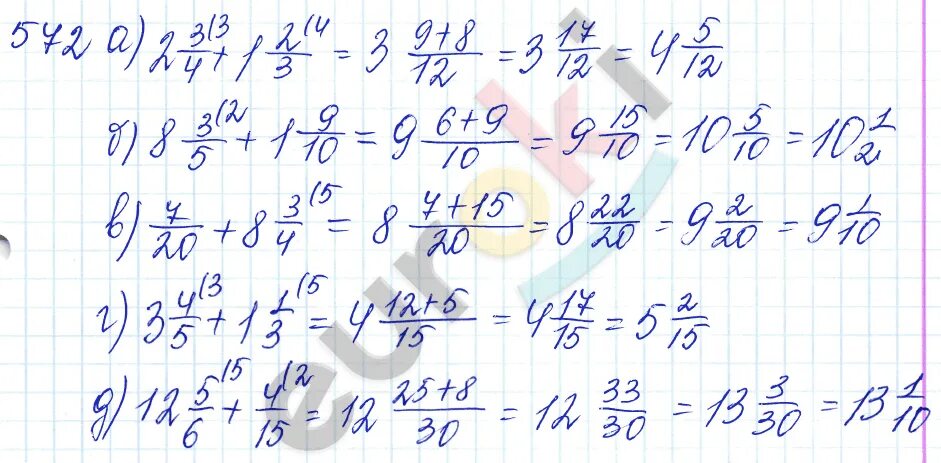 572 а) 2 3/4(3 + 1 2/3(4 = 3 9+8/12 = 3 17/12 = 4 5/12
б) 8 3/5(2 + 1 9/10 = 9 6+9/10 = 9 15/10 = 10 5/10 = 10 1/2
в) 7/20 + 8 3/4(5 = 8 7+15/20 = 8 22/20 = 9 2/20 = 9 1/10
г) 3 4/5(3 + 1 1/3(5 = 4 12+5/15 = 4 17/15 = 5 2/15
д) 12 5/6(5 + 4/15(2 = 12 25+8/30 = 12 33/30 = 13 3/30 = 13 1/10
euroki